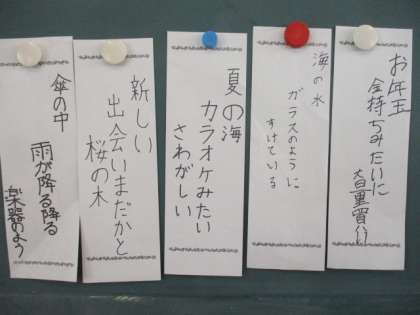 お年玉
金持ちみたいに
海の水
ガラスのように
すけている
夏の海
カラオケみたい
さわがしい
新しい
出会いまだかと
桜の木
傘の中
雨が降る降る
楽器のよう